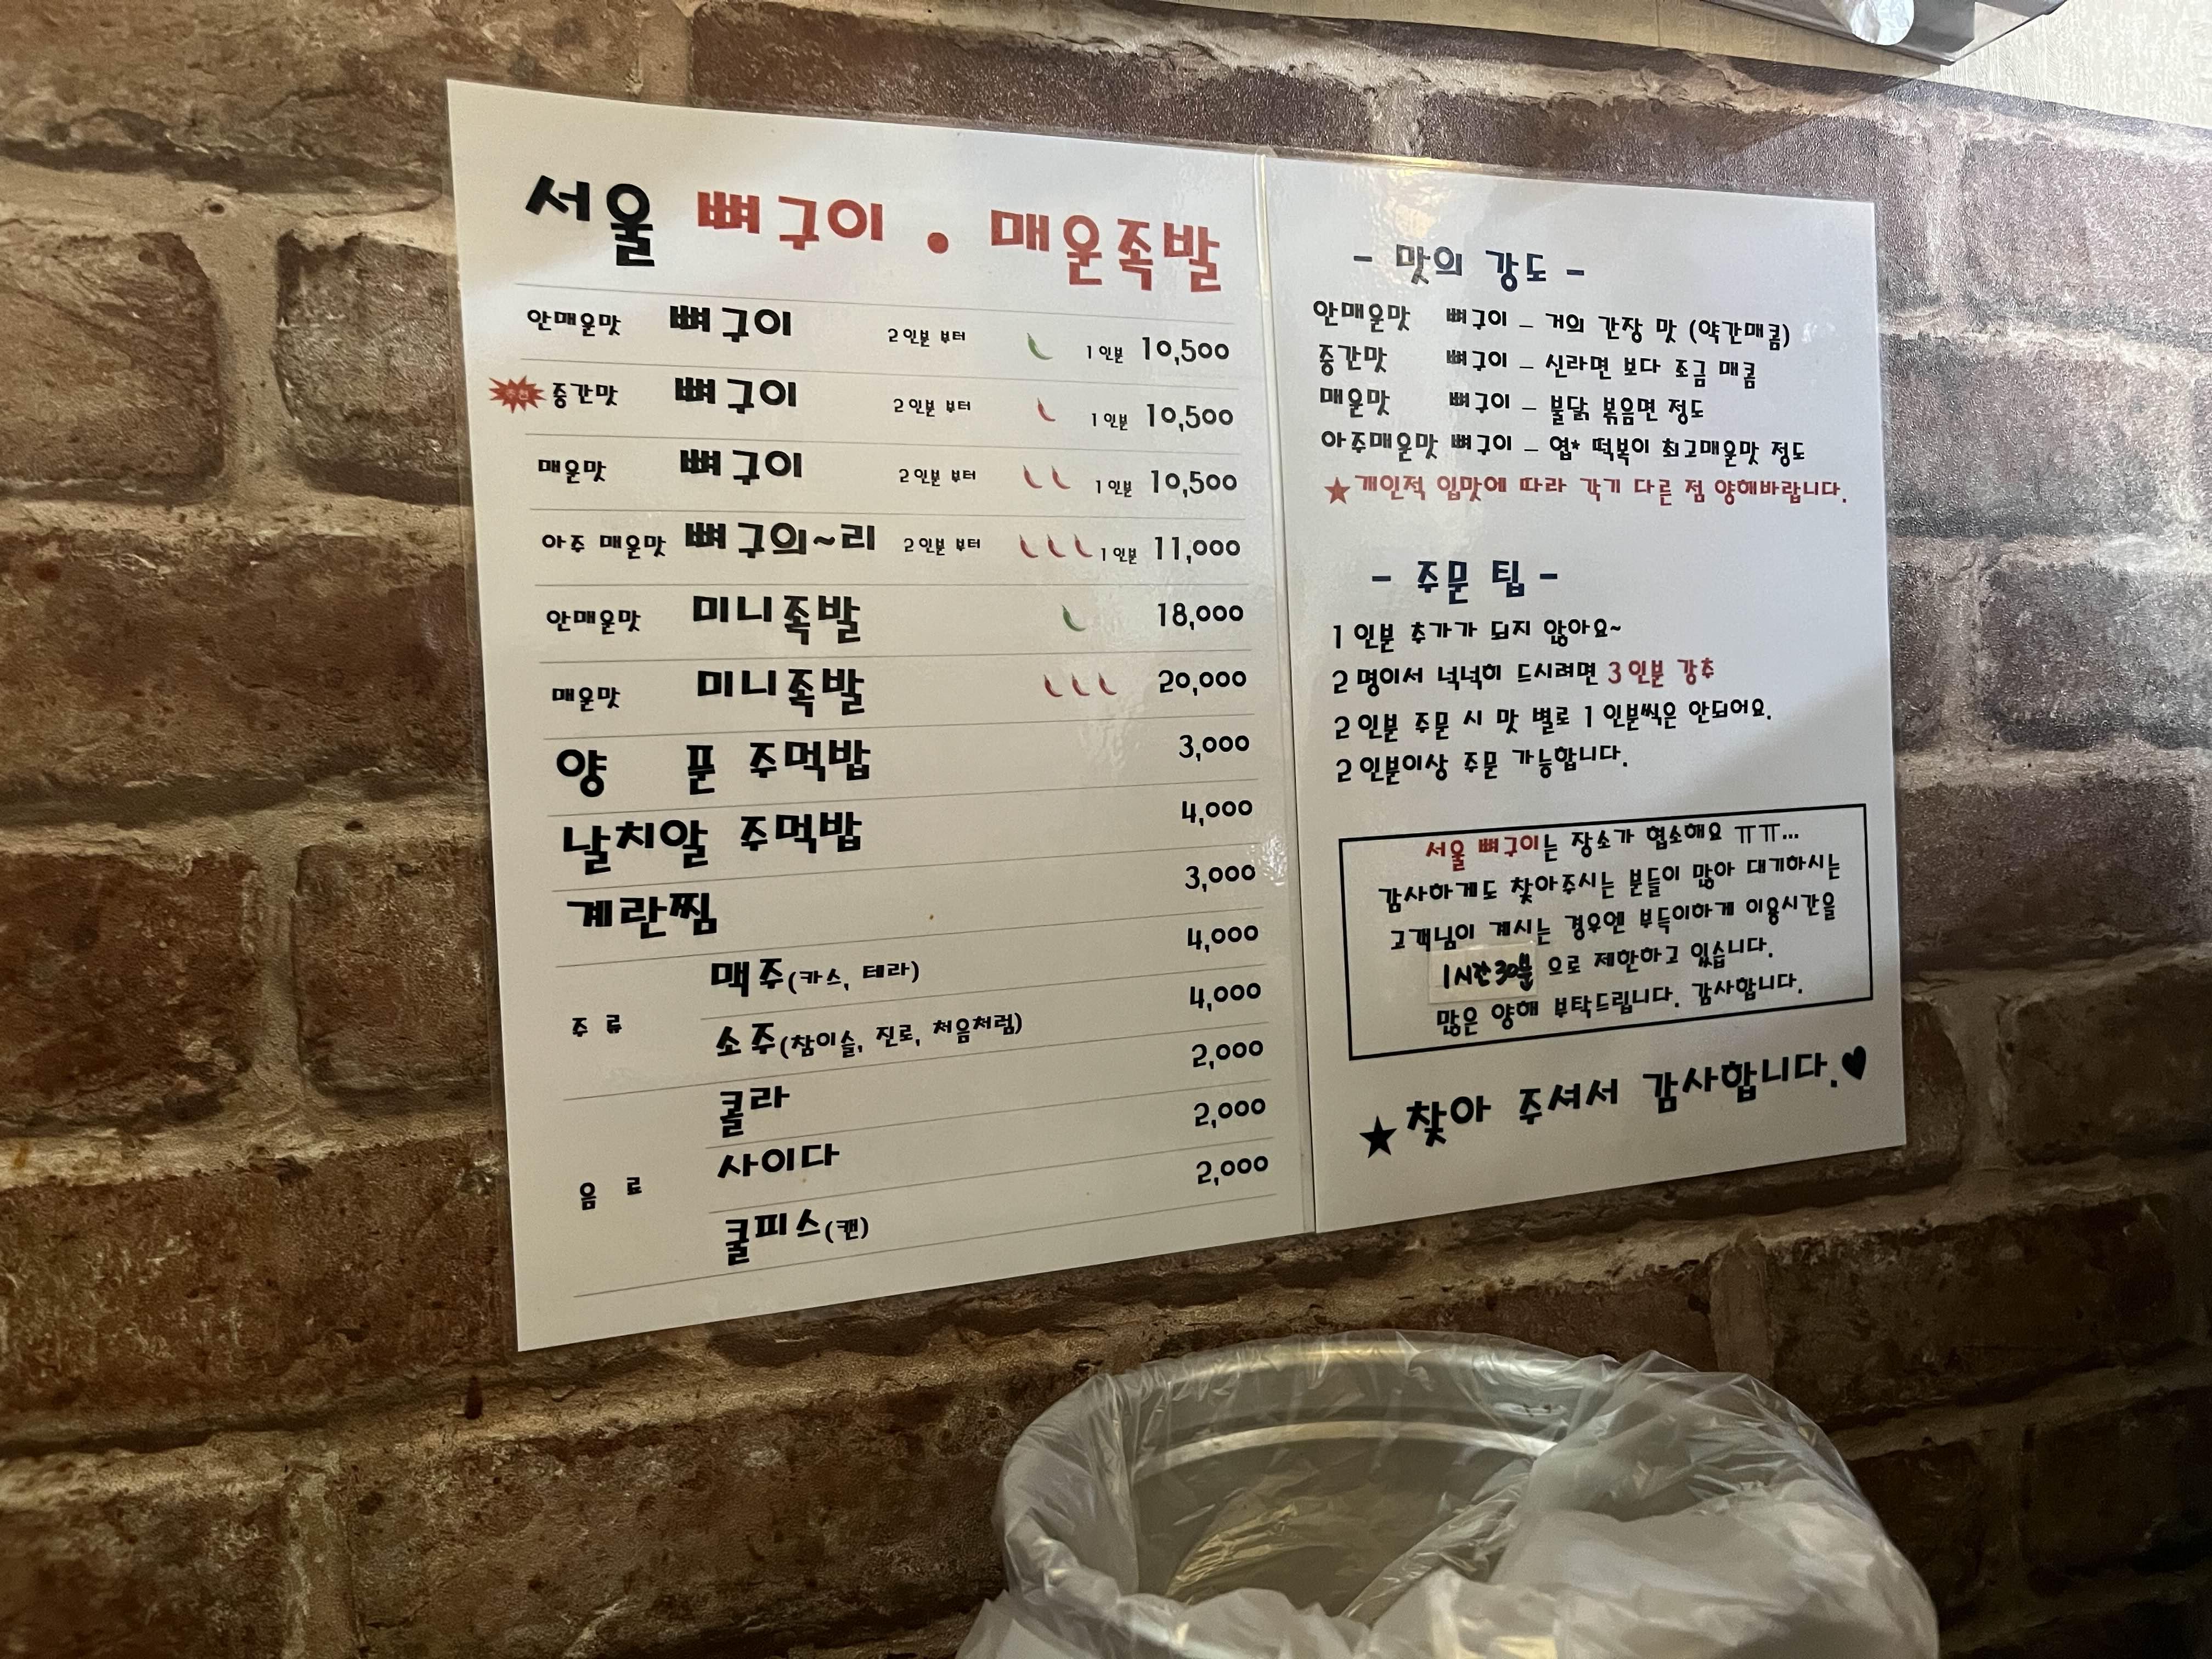 서울 뼈구이 • 매운족발
안매운맛 뼈구이 2인분 부터 1인분 10,500
추천 중간맛 뼈구이 2인분 부터 1인분 10,500
매운맛 뼈구이 2인분 부터 1인분 10,500
아주 매운맛 뼈구의~리 2인분 부터 1인분 11,000
안매운맛 미니족발 18,000
매운맛 미니족발 20,000
양 푼 주먹밥 3,000
날치알 주먹밥 4,000
계란찜 3,000
주 류
맥주(카스, 테라) 4,000
소주(참이슬, 진로, 처음처럼) 4,000
음 료
콜라 2,000
사이다 2,000
쿨피스(캔) 2,000
- 맛의 강도 -
안매운맛 뼈구이 - 거의 간장 맛 (약간매콤)
중간맛 뼈구이 - 신라면 보다 조금 매콤
매운맛 뼈구이 - 불닭 볶음면 정도
아주매운맛 뼈구이 - 엽* 떡볶이 최고매운맛 정도
★개인적 입맛에 따라 각기 다른 점 양해바랍니다.
- 주문 팁 -
1인분 추가가 되지 않아요~
2명이서 넉넉히 드시려면 3인분 강추
2인분 주문 시 맛 별로 1인분씩은 안되어요.
2인분이상 주문 가능합니다.
서울 뼈구이는 장소가 협소해요 ㅠㅠ...
감사하게도 찾아주시는 분들이 많아 대기하시는
고객님이 계시는 경우엔 부득이하게 이용시간을
1시간30분 으로 제한하고 있습니다.
많은 양해 부탁드립니다. 감사합니다.
★찾아 주셔서 감사합니다.♥